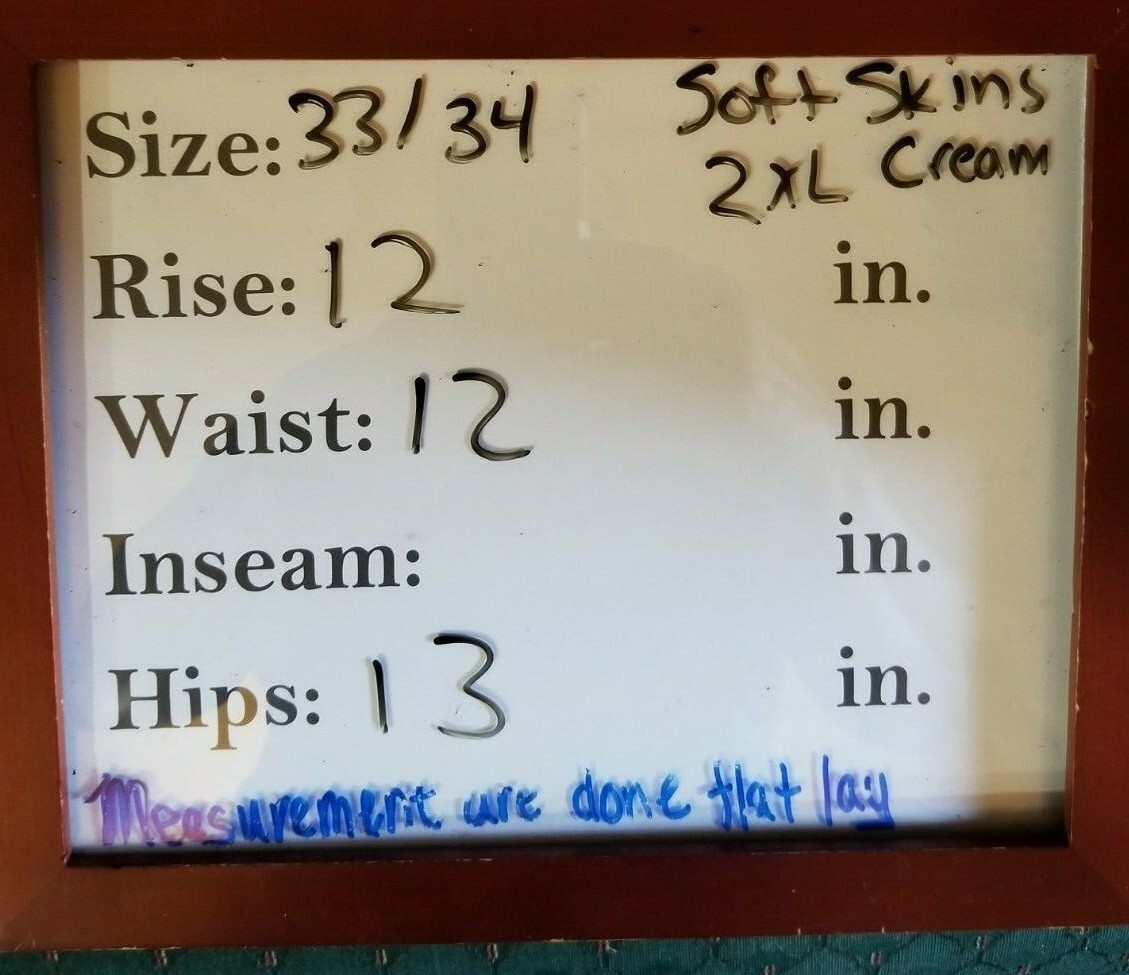 Size: 33/34 Soft Skins
2XL Cream
Rise: 12 in.
Waist: 12 in.
Inseam: in.
Hips: 13 in.
Measurement are done flat lay